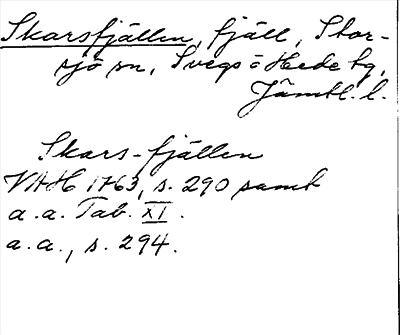 Skarsfjällen, fjäll, Stor-
sjö sn, Svegs o Hede tg,
Jämtl. l.
Skars-fjällen
VAH 1763, s. 290 samt
a. a. Tab. XI.
a. a., s. 294.